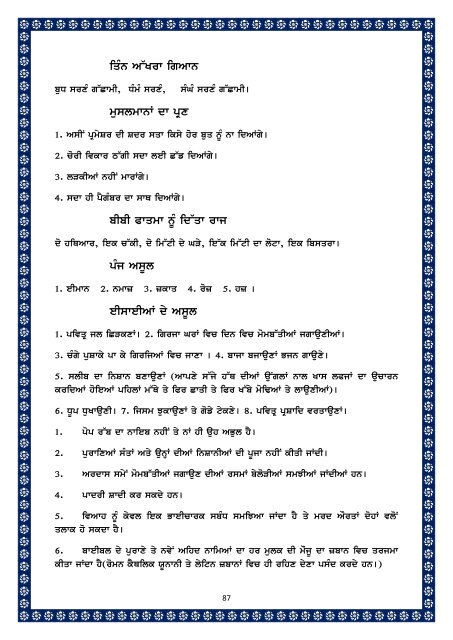 ਤਿੰਨ ਅੱਖਰਾ ਗਿਆਨ
ਬੁਧ ਸਰਣੰ ਗੱਛਾਮੀ, ਧੰਮੰ ਸਰਣੰ, ਸੰਘੰ ਸਰਣੰ ਗੱਛਾਮੀ।
ਮੁਸਲਮਾਨਾਂ ਦਾ ਪ੍ਰਣ
1. ਅਸੀਂ ਪ੍ਰਮੇਸ਼ਰ ਦੀ ਸ਼ਦਰ ਸਤਾ ਕਿਸੇ ਹੋਰ ਬੁਤ ਨੂੰ ਨਾ ਦਿਆਂਗੇ।
2. ਚੋਰੀ ਵਿਕਾਰ ਠੱਗੀ ਸਦਾ ਲਈ ਛੱਡ ਦਿਆਂਗੇ।
3. ਲੜਕੀਆਂ ਨਹੀਂ ਮਾਰਾਂਗੇ।
4. ਸਦਾ ਹੀ ਪੈਗੰਬਰ ਦਾ ਸਾਥ ਦਿਆਂਗੇ।
ਬੀਬੀ ਫਾਤਮਾ ਨੂੰ ਦਿੱਤਾ ਰਾਜ
ਦੋ ਹਥਿਆਰ, ਇਕ ਚੱਕੀ, ਦੋ ਮਿੱਟੀ ਦੇ ਘੜੇ, ਇੱਕ ਮਿੱਟੀ ਦਾ ਲੋਟਾ, ਇਕ ਬਿਸਤਰਾ।
ਪੰਜ ਅਸੂਲ
1. ਈਮਾਨ 2. ਨਮਾਜ਼ 3. ਜ਼ਕਾਤ 4. ਰੋਜ਼ 5. ਹਜ਼ ।
ਈਸਾਈਆਂ ਦੇ ਅਸੂਲ
1. ਪਵਿਤ੍ਰ ਜਲ ਛਿੜਕਣਾਂ। 2. ਗਿਰਜਾ ਘਰਾਂ ਵਿਚ ਦਿਨ ਵਿਚ ਮੋਮਬੱਤੀਆਂ ਜਗਾਉਣੀਆਂ।
3. ਚੰਗੇ ਪੁਸ਼ਾਕੇ ਪਾ ਕੇ ਗਿਰਜਿਆਂ ਵਿਚ ਜਾਣਾ । 4. ਬਾਜਾ ਬਜਾਉਣਾਂ ਭਜਨ ਗਾਉਣੇ।
5. ਸਲੀਬ ਦਾ ਨਿਸ਼ਾਨ ਬਣਾਉਣਾਂ (ਆਪਣੇ ਸੱਜੇ ਹੱਥ ਦੀਆਂ ਉੱਗਲਾਂ ਨਾਲ ਖਾਸ ਲਫਜਾਂ ਦਾ ਉਚਾਰਨ
ਕਰਦਿਆਂ ਹੋਇਆਂ ਪਹਿਲਾਂ ਮੱਥੇ ਤੇ ਫਿਰ ਛਾਤੀ ਤੇ ਫਿਰ ਖੱਬੇ ਮੋਢਿਆਂ ਤੇ ਲਾਉਣੀਆਂ)।
6. ਧੂਪ ਧੁਖਾਉਣੀ। 7. ਜਿਸਮ ਝੁਕਾਉਣਾਂ ਤੇ ਗੋਡੇ ਟੇਕਣੇ। 8. ਪਵਿਤ੍ਰ ਪ੍ਰਸ਼ਾਦਿ ਵਰਤਾਉਣਾਂ।
1. ਪੋਪ ਰੱਬ ਦਾ ਨਾਇਬ ਨਹੀਂ ਤੇ ਨਾਂ ਹੀ ਉਹ ਅਭੁਲ ਹੈ।
2. ਪੁਰਾਣਿਆਂ ਸੰਤਾਂ ਅਤੇ ਉਨ੍ਹਾਂ ਦੀਆਂ ਨਿਸ਼ਾਨੀਆਂ ਦੀ ਪੂਜਾ ਨਹੀਂ ਕੀਤੀ ਜਾਂਦੀ।
3. ਅਰਦਾਸ ਸਮੇਂ ਮੋਮਬੱਤੀਆਂ ਜਗਾਉਣ ਦੀਆਂ ਰਸਮਾਂ ਬੇਲੋੜੀਆਂ ਸਮਝੀਆਂ ਜਾਂਦੀਆਂ ਹਨ।
4. ਪਾਦਰੀ ਸ਼ਾਦੀ ਕਰ ਸਕਦੇ ਹਨ।
5. ਵਿਆਹ ਨੂੰ ਕੇਵਲ ਇਕ ਭਾਈਚਾਰਕ ਸਬੰਧ ਸਮਝਿਆ ਜਾਂਦਾ ਹੈ ਤੇ ਮਰਦ ਔਰਤਾਂ ਦੋਹਾਂ ਵਲੋਂ
ਤਲਾਕ ਹੋ ਸਕਦਾ ਹੈ।
6. ਬਾਈਬਲ ਦੇ ਪੁਰਾਣੇ ਤੇ ਨਵੇਂ ਅਹਿਦ ਨਾਮਿਆਂ ਦਾ ਹਰ ਮੁਲਕ ਦੀ ਮੌਜੂ ਦਾ ਜ਼ਬਾਨ ਵਿਚ ਤਰਜਮਾ
ਕੀਤਾ ਜਾਂਦਾ ਹੈ(ਰੋਮਨ ਕੈਥਲਿਕ ਯੂਨਾਨੀ ਤੇ ਲੇਟਿਨ ਜ਼ਬਾਨਾਂ ਵਿਚ ਹੀ ਰਹਿਣ ਦੇਣਾ ਪਸੰਦ ਕਰਦੇ ਹਨ।)
87